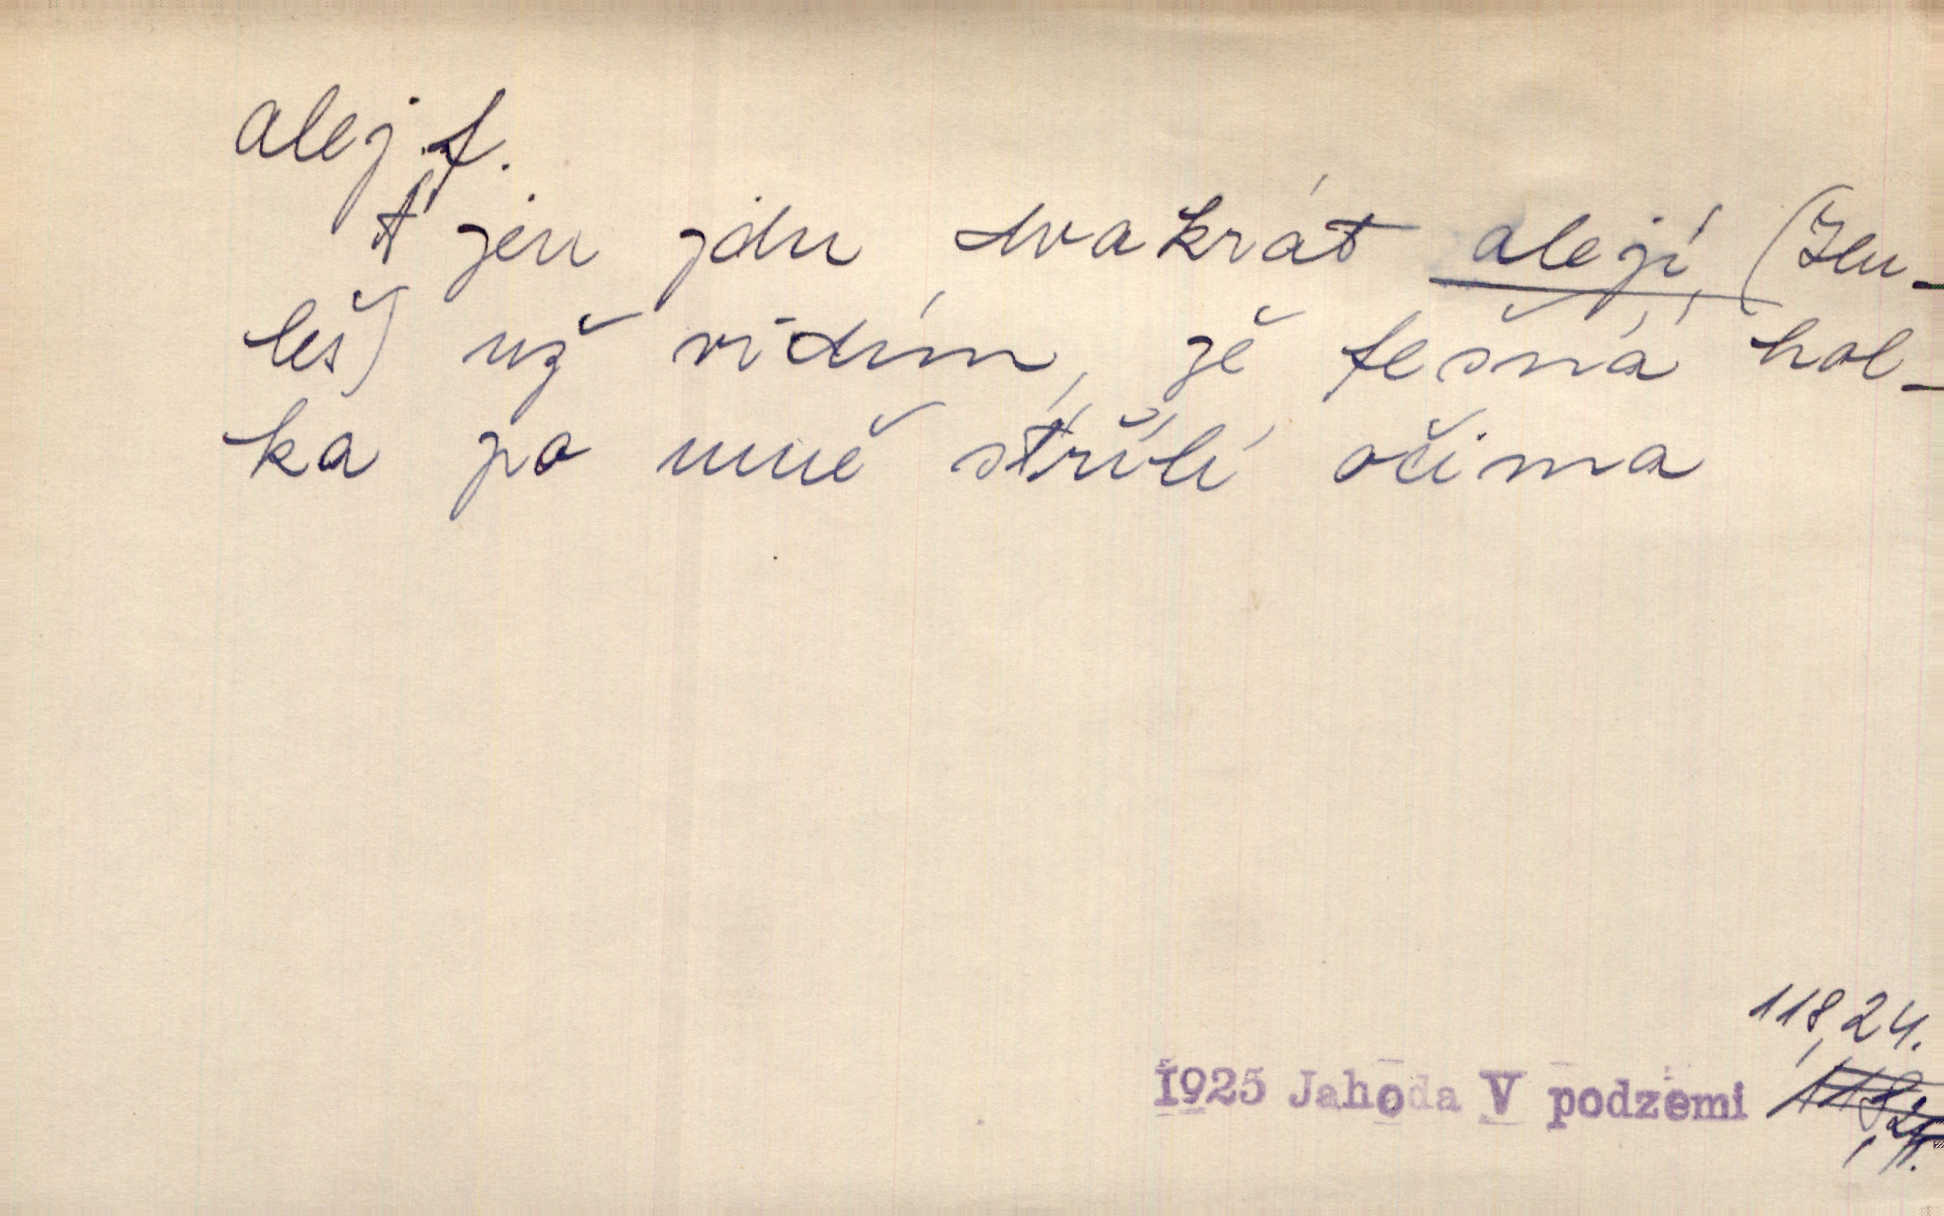 alej f.
Ať jen jdu dvakrát alejí, (Jen-
leš) už vidím, že fešná hol-
ka po mně střílí očima
118,24.
1925 Jahoda V podzemi